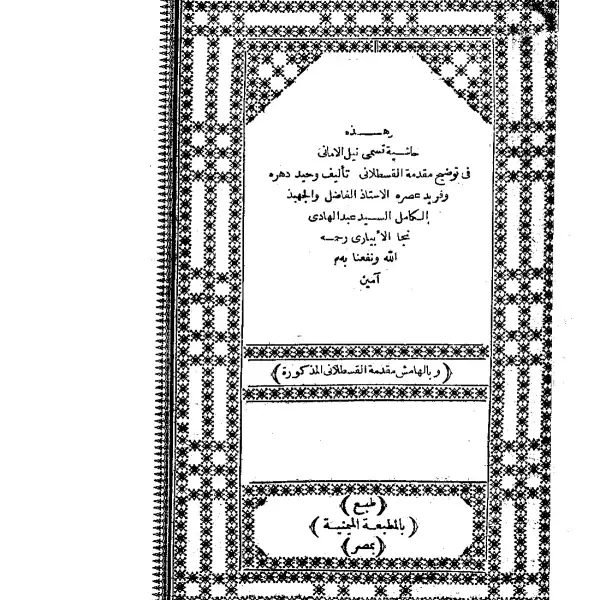 وهذه
حاشية تسمى نيل الامانى
فى توضيح مقدمة القسطلانى تأليف وحيد دهره
وفريد عصره الاستاذ الفاضل والجهبذ
الكامل السيد عبد الهادى
نجا الأبيارى رحمه
الله ونفعنا بهم
آمين
(وبالهامش مقدمة القسطلانى المذكورة)
(طبع)
(بالمطبعة الميمنية)
(بمصر)